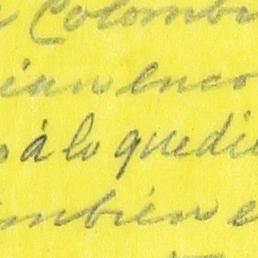 Colombi
ian enco
s á lo quedi
mbién e